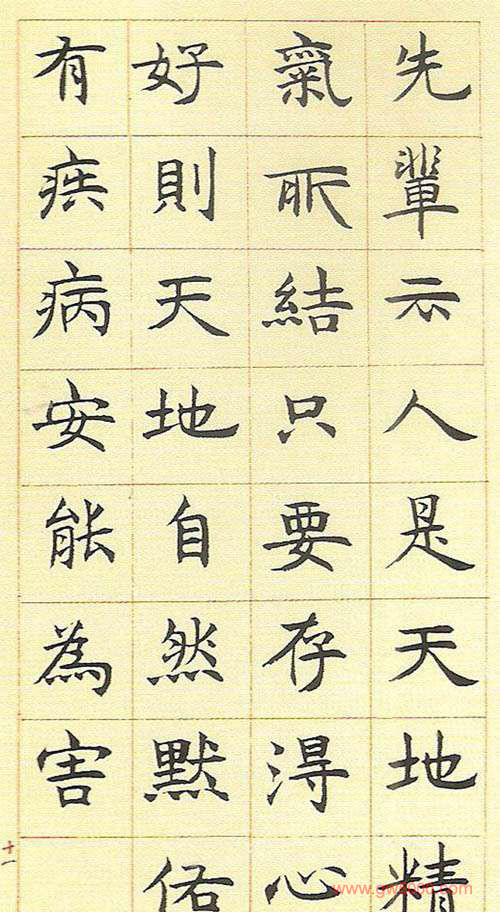 先輩云人是天地精
氣所結只要存得心
好則天地自然默佑
有疾病安能為害
十一
www.gwz000.com